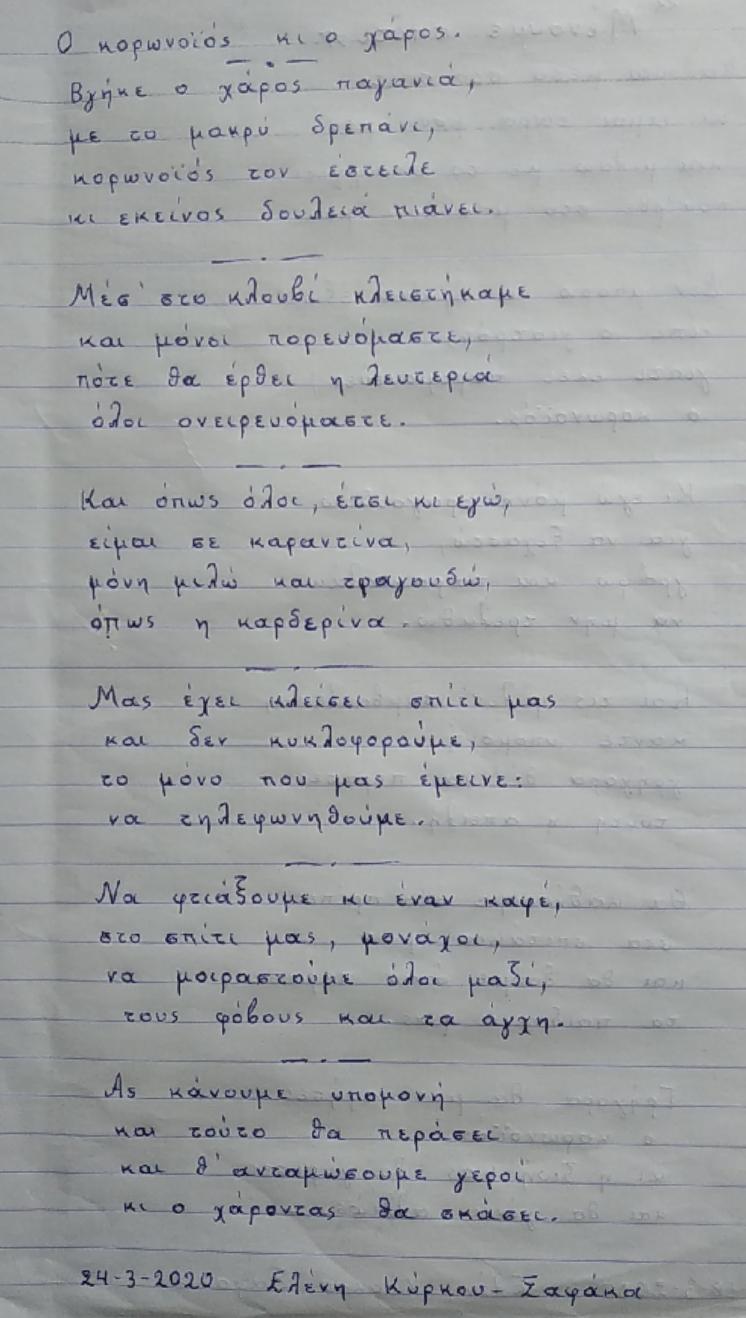 Ο κορωνοϊός κι ο χάρος.
Βγήκε ο χάρος παγανιά,
με το μακρύ δρεπάνι,
κορωνοϊός τον έστειλε
κι εκείνος δουλειά πιάνει.
Μέσ' στο κλουβί κλειστήκαμε
και μόνοι πορευόμαστε,
πότε θα έρθει η λευτεριά
όλοι ονειρευόμαστε.
Και όπως όλοι, έτσι κι εγώ,
είμαι σε καραντίνα,
μόνη μιλώ και τραγουδώ,
όπως η καρδερίνα.
Μας έχει κλείσει σπίτι μας
και δεν κυκλοφορούμε,
το μόνο που μας έμεινε:
να τηλεφωνηθούμε.
Να φτιάξουμε κι έναν καφέ,
στο σπίτι μας, μονάχοι,
να μοιραστούμε όλοι μαζί,
τους φόβους και τα άγχη.
Ας κάνουμε υπομονή
και τούτο θα περάσει
και θ' ανταμώσουμε γεροί
κι ο χάροντας θα σκάσει.
24-3-2020 Ελένη Κύρκου-Σαφάκα